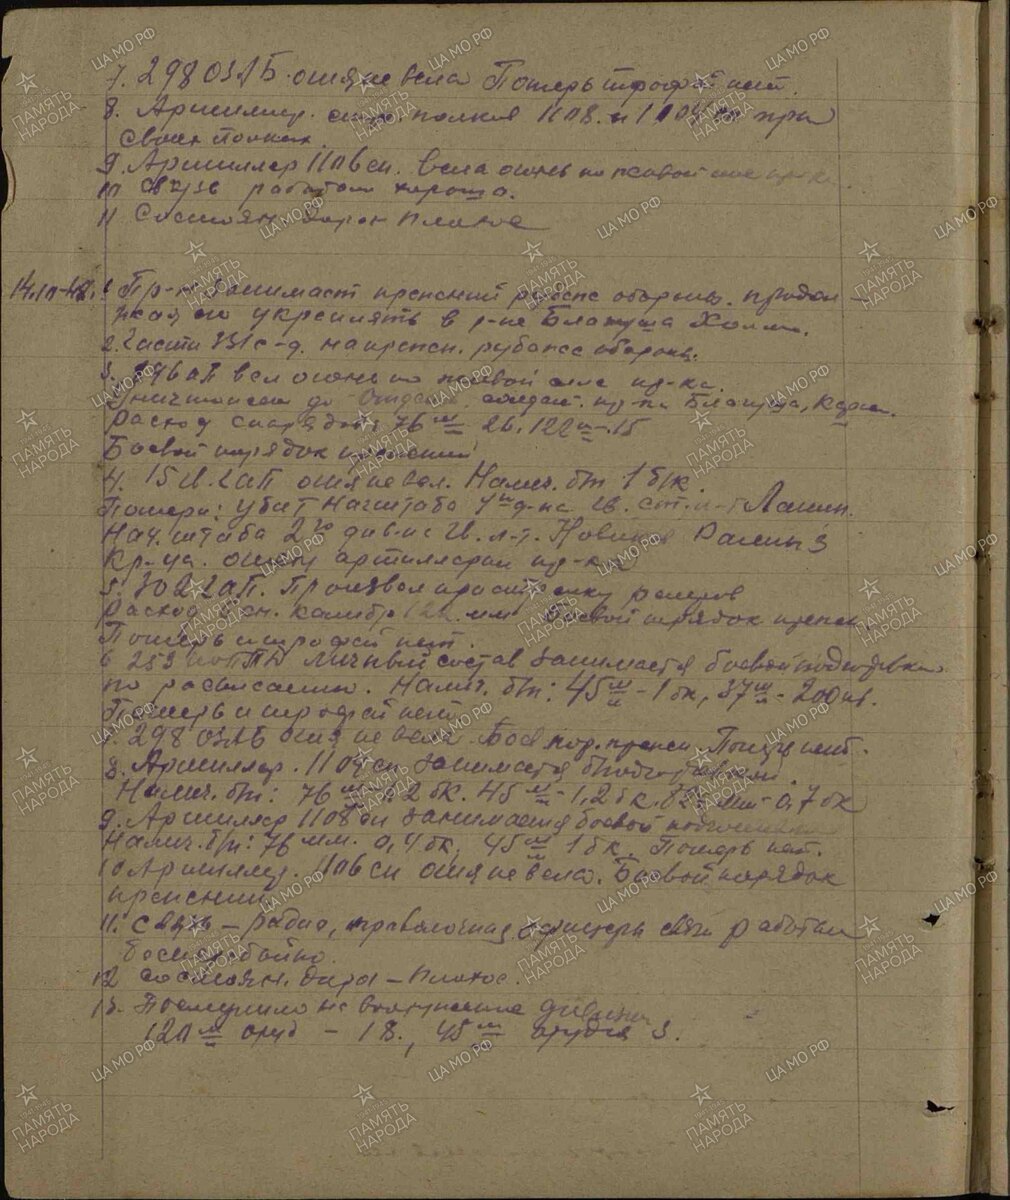 7. 298 ОЗАБ. огня не вела Потерь трофей нет.
8. Артиллер. стр. полков 1108 и 1104 сп при
своих полках.
9. Артиллер 1106 сп. вела огонь по живой силе
10 Связь работала хорошо.
11 Состоян. дорог плохое
14.10-42. 1 Пр-к занимает прежний рубеж обороны. продол-
жая его укреплять в р-не
2. Части 331 с-д. на прежн. рубеже обороны.
3. АП вел огонь по живой силе пр-ка.
Уничтожено до солдат. пр-ка
Расход снарядов: 76 мм 26. 122 мм - 15
Боевой порядок прежний
4. огня не вел. Налич. б/п 1 б/к.
Потери: Убит Нач штаба д-на Гв. ст. л-т
Нач. штаба 2го див-на Гв. л-т. Новиков Ранены 3
Кр-ца. огнем артиллерии пр-ка
5. ГАП. Произвел пристрелку реперов
Расход сн. калибр 122 мм Боевой порядок прежн.
Потерь и трофей нет.
6 253 личный состав занимается боевой подготовкой
по расписанию. Налич. б/п: 45 мм - 1 бк, 37 мм -
Потерь и трофей нет.
7. 298 ОЗАБ огня не вела Боев. пор. прежн. Потерь нет.
8. Артиллер. 1104 сп занимается б/подготовкой.
Налич. б/п: 76 мм 2 бк. 45 мм - 1,2 бк. 82 мм - 0,7 бк
9. Артиллер 1108 сп занимается боевой подготовкой
Налич. б/п: 76 мм. 0,4 бк, 45 мм 1 бк. Потерь нет.
10 Артиллер. 1106 сп огня не вела. Боевой порядок
прежний.
11. Связь - радио, проволочная офицеры связи работали
бесперебойно.
12 Состоян. дорог - Плохое.
13. Поступило на вооружение дивизии
120 мм оруд - 18., 45 мм орудия 3.
ЦА МО РФ
ПАМЯТЬ НАРОДА